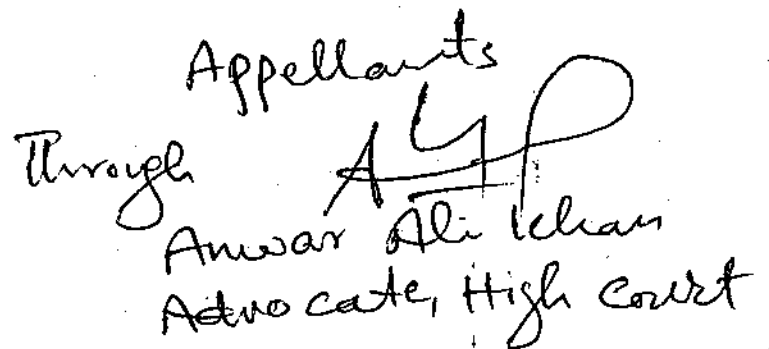 Appellants
Through
Anwar Ali Khan
Advocate, High Court